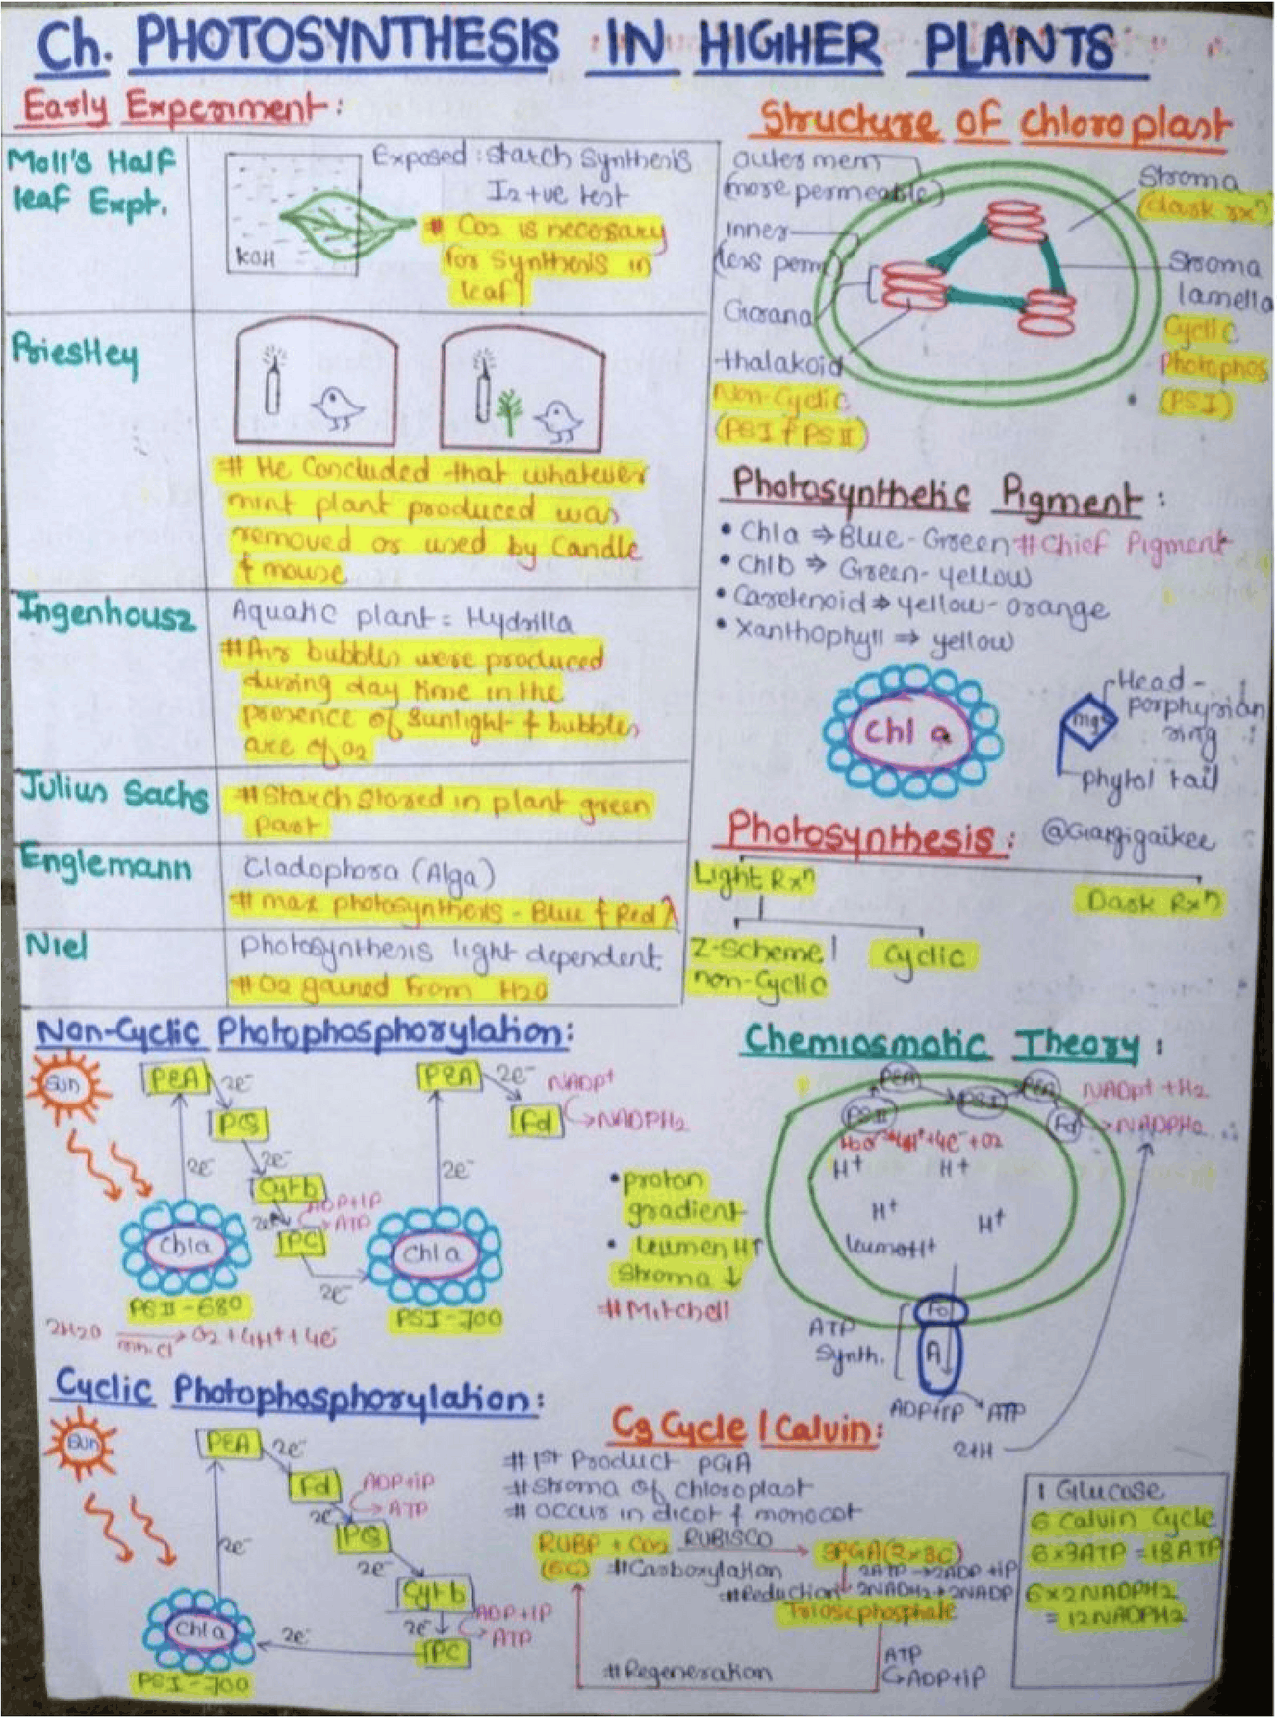 Ch. PHOTOSYNTHESIS IN HIGHER PLANTS
Early Experiment:
Moll's Half
leaf Expt.
KOH
Exposed: starch synthesis
I2 +ve test
# Co2 is necessary
for synthesis in
leaf
Priestley
# He Concluded that whatever
mint plant produced was
removed or used by Candle
& mouse
Ingenhousz
Aquatic plant = Hydrilla
# Air bubbles were produced
during day time in the
presence of Sunlight & bubbles
are of O2
Julius Sachs
# Starch stored in plant green
part
Englemann
Cladophora (Alga)
# max photosynthesis - Blue & Red λ
Niel
Photosynthesis light dependent.
# O2 gained from H2O
Structure of chloroplast
outer mem
(more permeable)
inner
(less perm)
Grana
thalakoid
Non-Cyclic
(PSI & PSII)
Stroma
(dark rxn)
Stroma
lamella
Cyclic
Photophos
(PSI)
Photosynthetic Pigment:
• Chla ⇒ Blue-Green # Chief Pigment
• Chlb ⇒ Green-yellow
• Carotenoid ⇒ yellow-orange
• Xanthophyll ⇒ yellow
Chl a
Mg
Head -
porphyrian
ring
phytol tail
Photosynthesis:
@Gargigaikee
Light Rxn
Dark Rxn
Z-Scheme/
non-Cyclic
Cyclic
Non-Cyclic Photophosphorylation:
Sun
PEA
2e-
PQ
2e-
2e-
Cyt b
ADP+iP
ATP
2e-
PC
2e-
Chla
PSII-680
2H2O → O2 + 4H+ + 4e-
mn.cl
PEA
2e-
NADP+
NADPH2
Fd
2e-
Chl a
PSI-700
Chemiosmotic Theory:
PEA
PSII
PSI
PEA
Fd
NADP+ + H2
NADPH2
+4e- + O2
H+
H+
H+
H+
leumen H+
• proton
gradient
• Leumen H↑
Stroma ↓
# Mitchell
ATP
Synth.
Fo
ADP+iP
ATP
2H
Cyclic Photophosphorylation:
Sun
PEA
2e-
Fd
ADP+iP
ATP
2e-
PQ
2e-
2e-
Cyt b
ADP+iP
ATP
2e-
PC
2e-
Chla
PSI-700
C3 Cycle / Calvin:
# 1st Product PGA
# Stroma of chloroplast
# occurs in dicot & monocot
RUBP + Co2
RUBISCO
3PGA(2x3C)
(6C)
# Carboxylation
2ATP → 2ADP+iP
# Reduction
2NADH2 → 2NADP
Triosephosphate
ATP
ADP+iP
# Regeneration
1 Glucose
6 Calvin Cycle
6x3ATP = 18ATP
6x2NADPH2
= 12NADPH2